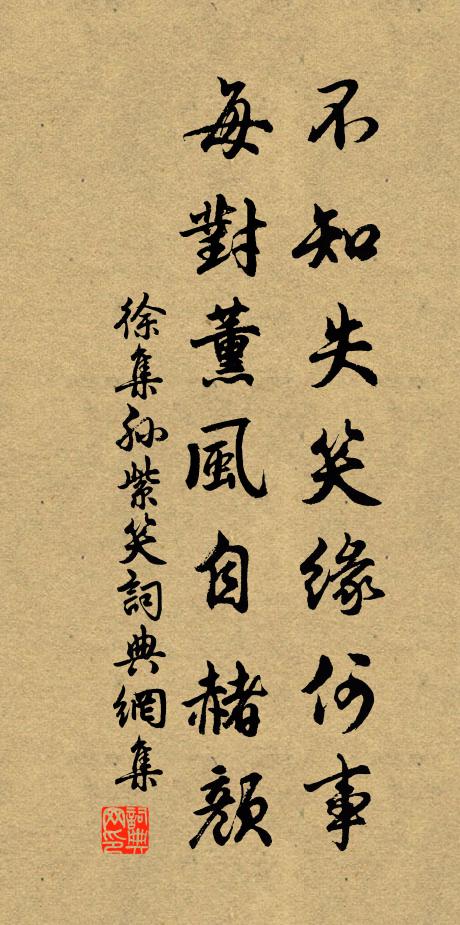 不知失笑緣何事
每對薰風自赭顏
徐集孙紫笑詞典網集
詞典网印